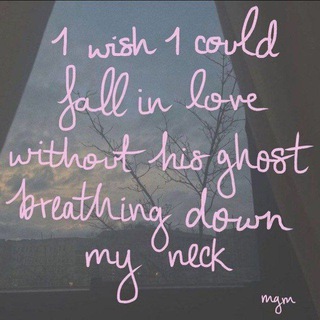 I wish I could
fall in love
without his ghost
breathing down
my neck
mgm